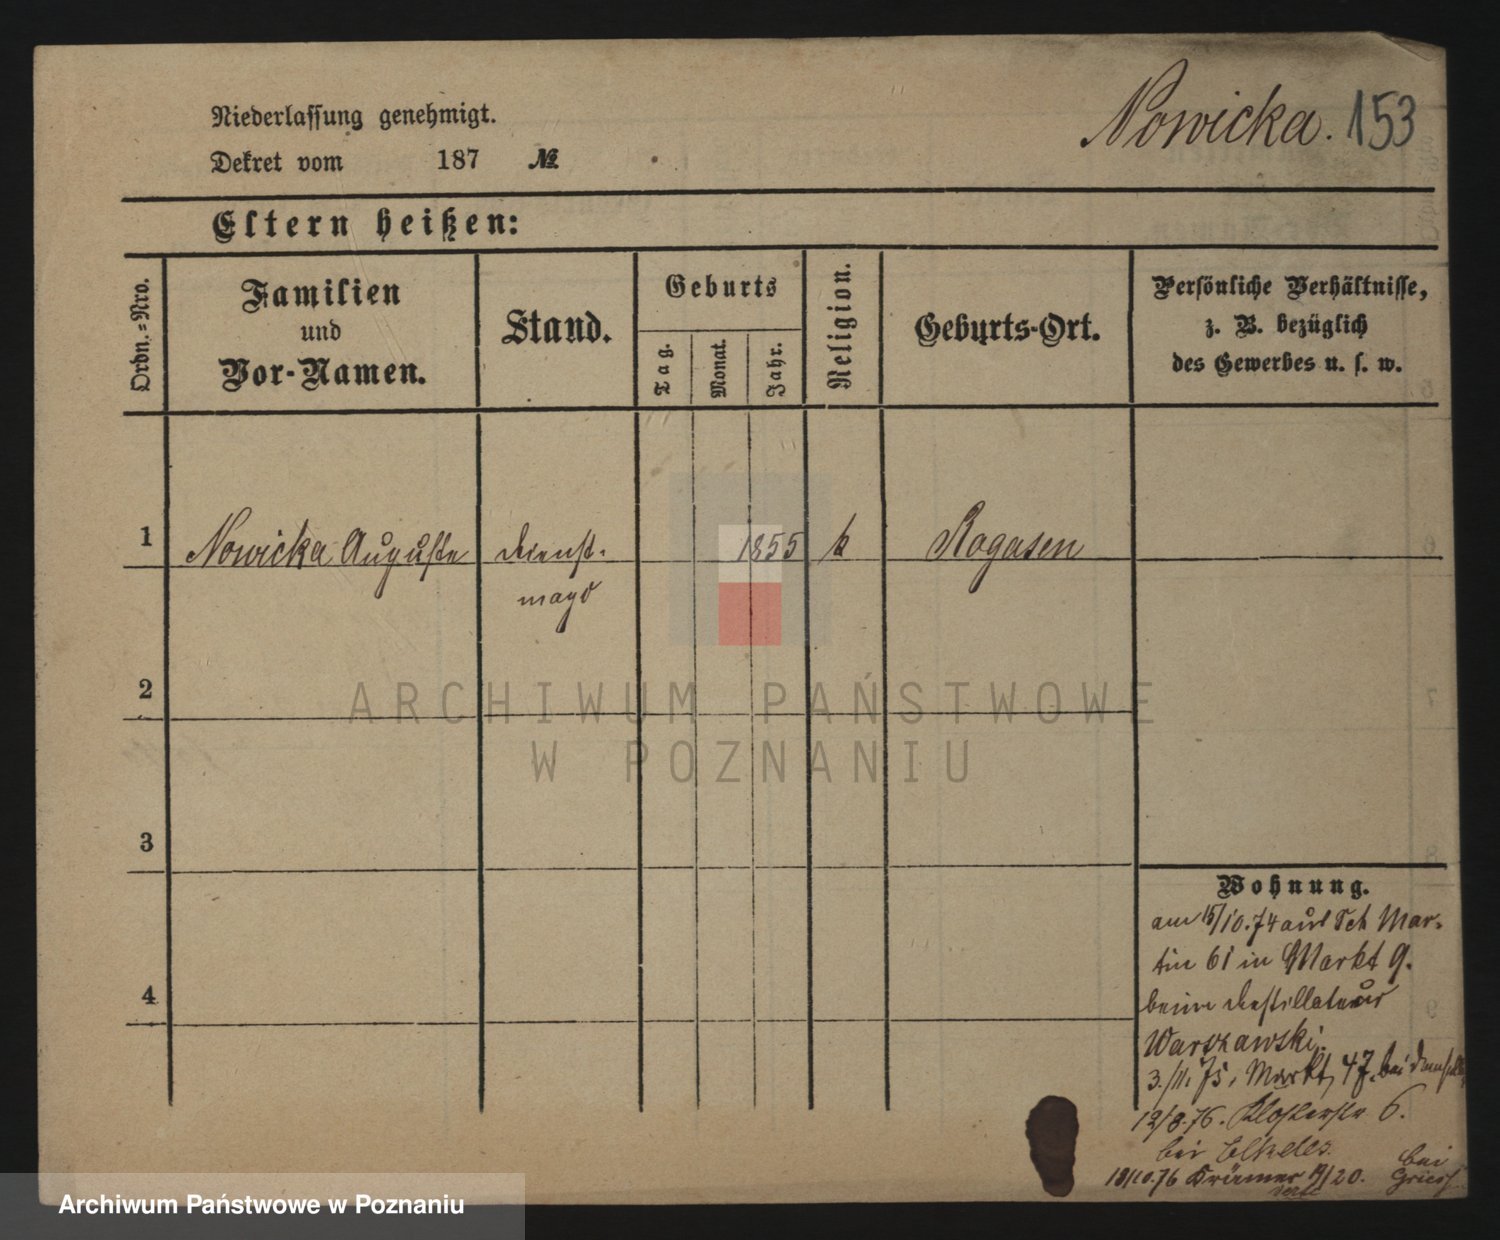 Niederlassung genehmigt.
Nowicka. 153
Dekret vom 187 №
Eltern heißen:
Ordn.=Nro.
Familien
und
Vor-Namen.
Stand.
Geburts
Tag.
Monat.
Jahr.
Religion.
Geburts-Ort.
Persönliche Verhältnisse,
z. B. bezüglich
des Gewerbes u. s. w.
1 Nowicka Auguste Dienst- 1855 k Rogasen
magd
2
ARCHIWUM PAŃSTWOWE
W POZNANIU
3
4
Wohnung.
am 15/10.74 aus Sct Mar-
tin 61 in Markt 9.
beim Destillateur
Warszawski.
3./11. 75, Markt 47. bei demselb
12/8.76. Klosterstr 6.
bei
18/10.76 Krämer 19/20. bei
Archiwum Państwowe w Poznaniu